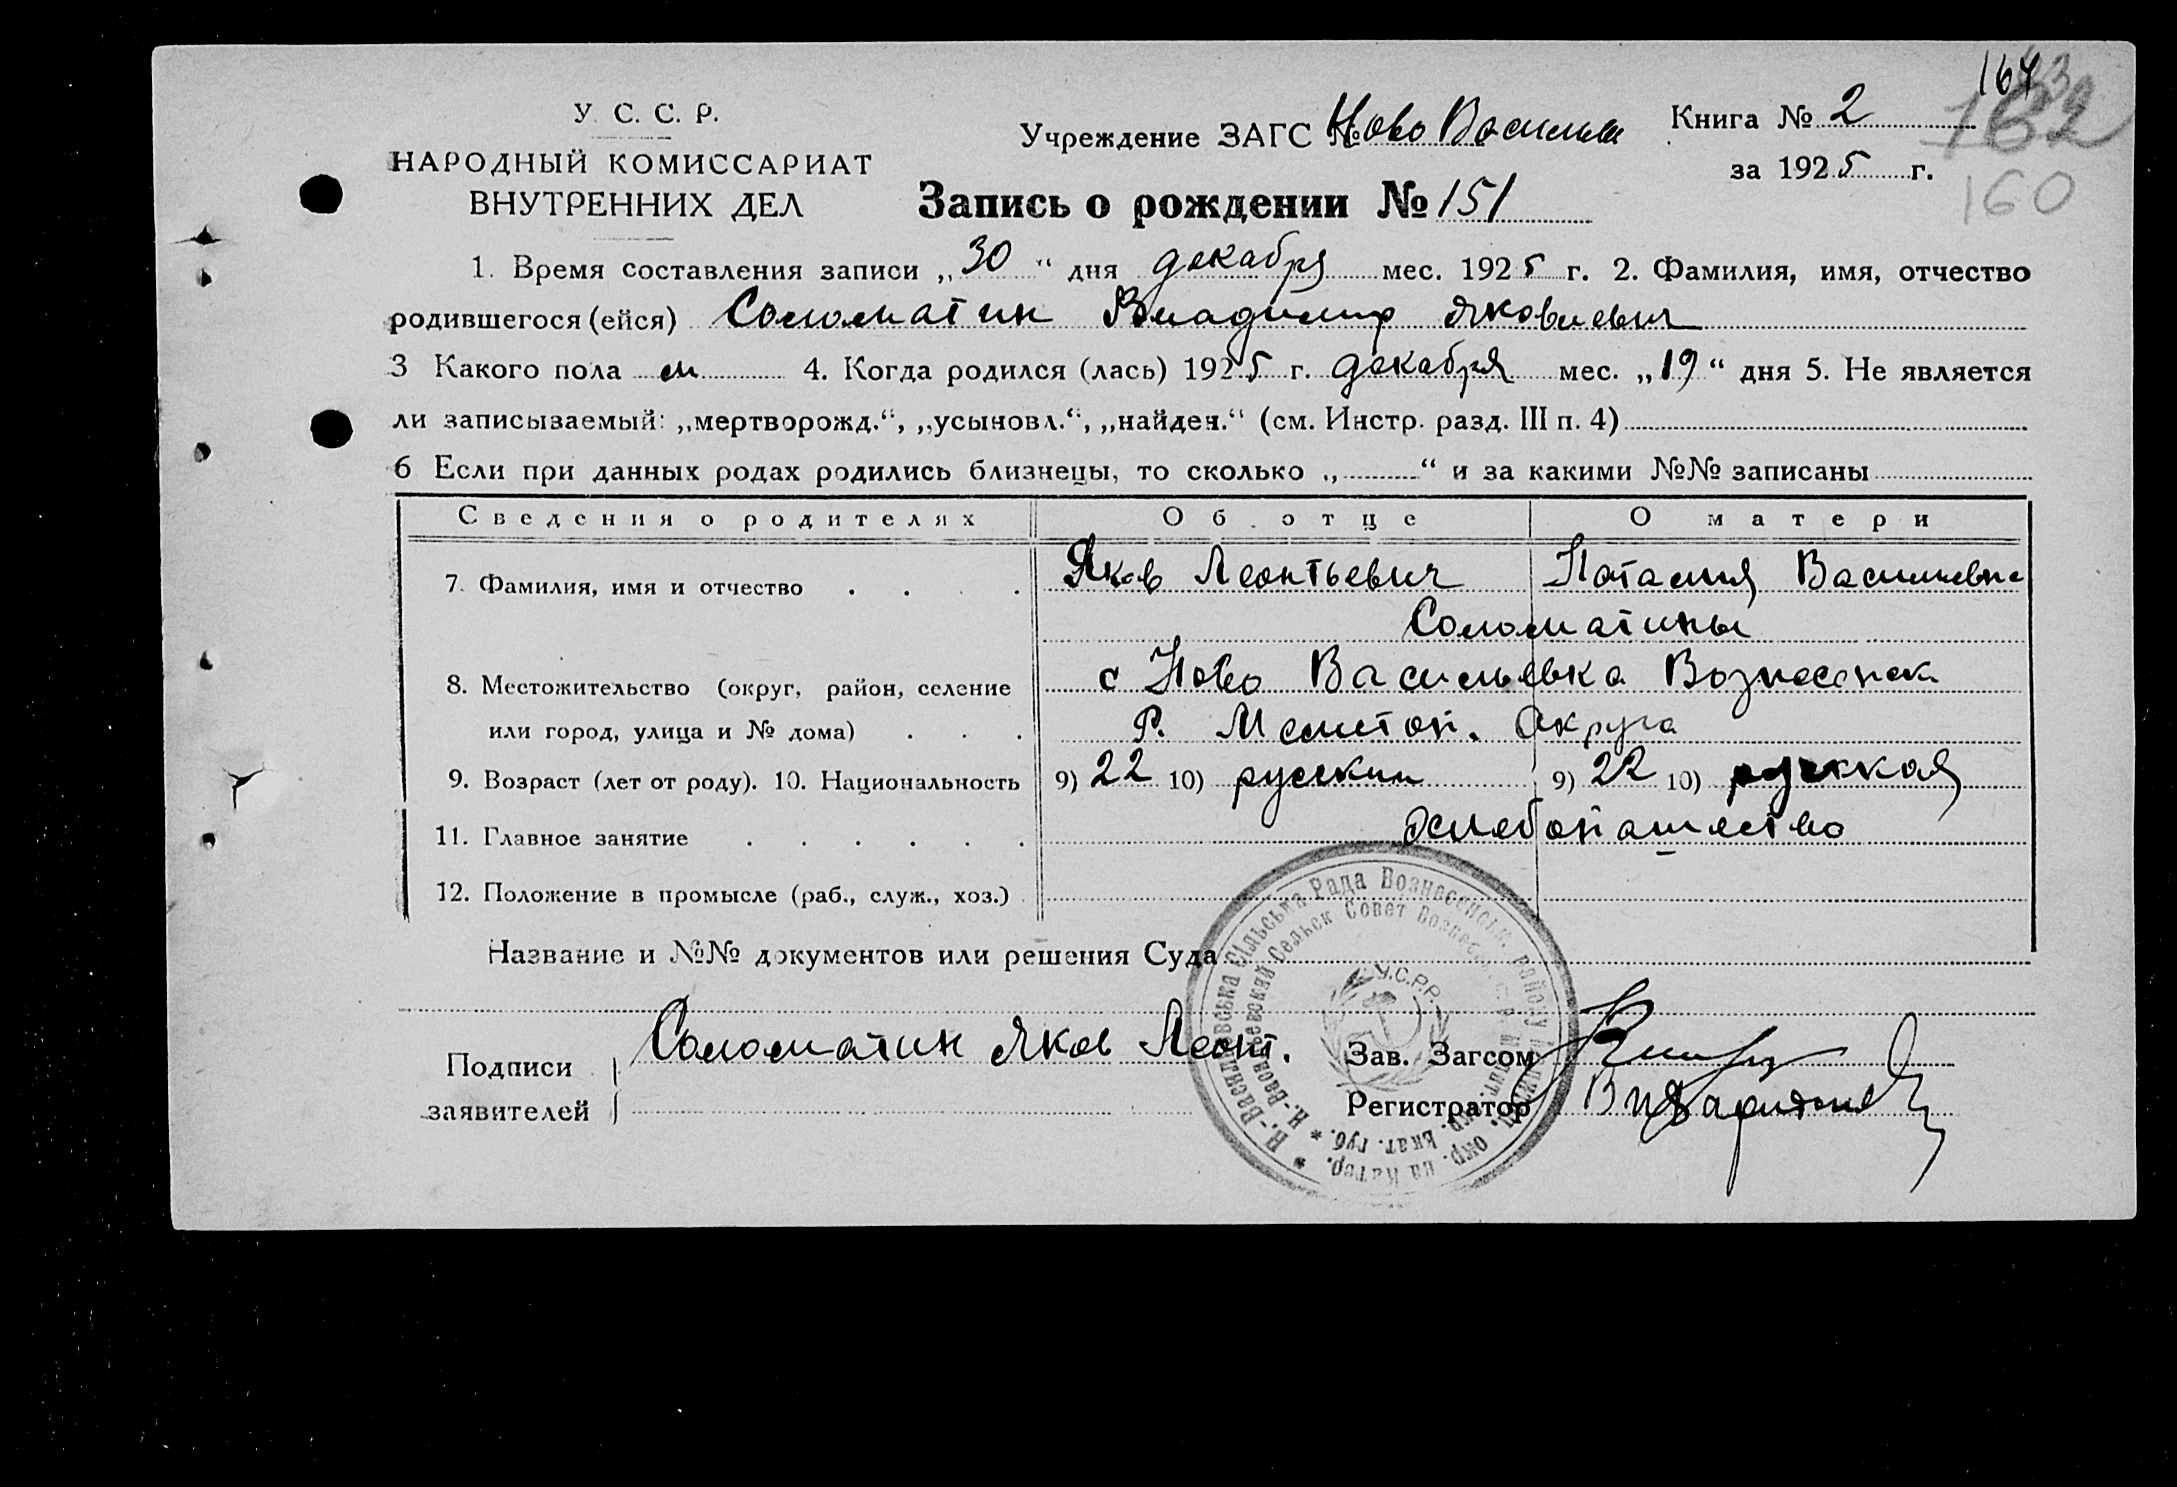 164
162
160
У. С. С. Р.
НАРОДНЫЙ КОМИССАРИАТ
ВНУТРЕННИХ ДЕЛ
Учреждение ЗАГС № Ново Василив
Книга № 2
за 1925 г.
Запись о рождении № 151
1. Время составления записи „30“ дня декабря мес. 1925 г. 2. Фамилия, имя, отчество
родившегося (ейся) Соломатин Владимир Яковлевич
3 Какого пола м 4. Когда родился (лась) 1925 г. декабря мес. „19“ дня 5. Не является
ли записываемый: „мертворожд.“, „усыновл.“, „найден.“ (см. Инстр. разд. III п. 4)
6 Если при данных родах родились близнецы, то сколько „ “ и за какими №№ записаны
Сведения о родителях Об отце О матери
7. Фамилия, имя и отчество Яков Леонтьевич Наталия Васильевна
Соломатины
8. Местожительство (округ, район, селение с Ново Васильевка Вознесенск
или город, улица и № дома) Р. Мелитоп. Округа
9. Возраст (лет от роду). 10. Национальность 9) 22 10) русский 9) 22 10) русская
11. Главное занятие хлебопашество
12. Положение в промысле (раб., служ., хоз.)
Название и №№ документов или решения Суда
Подписи заявителей Соломатин Яков Леонт.
Зав. Загсом
Регистратор
Н.-Василівська Сільська Рада Вознесенськ. району окр. на Катер.
Н.-Васильевский Сельск Совет Екат. губ.
У.С.Р.Р.